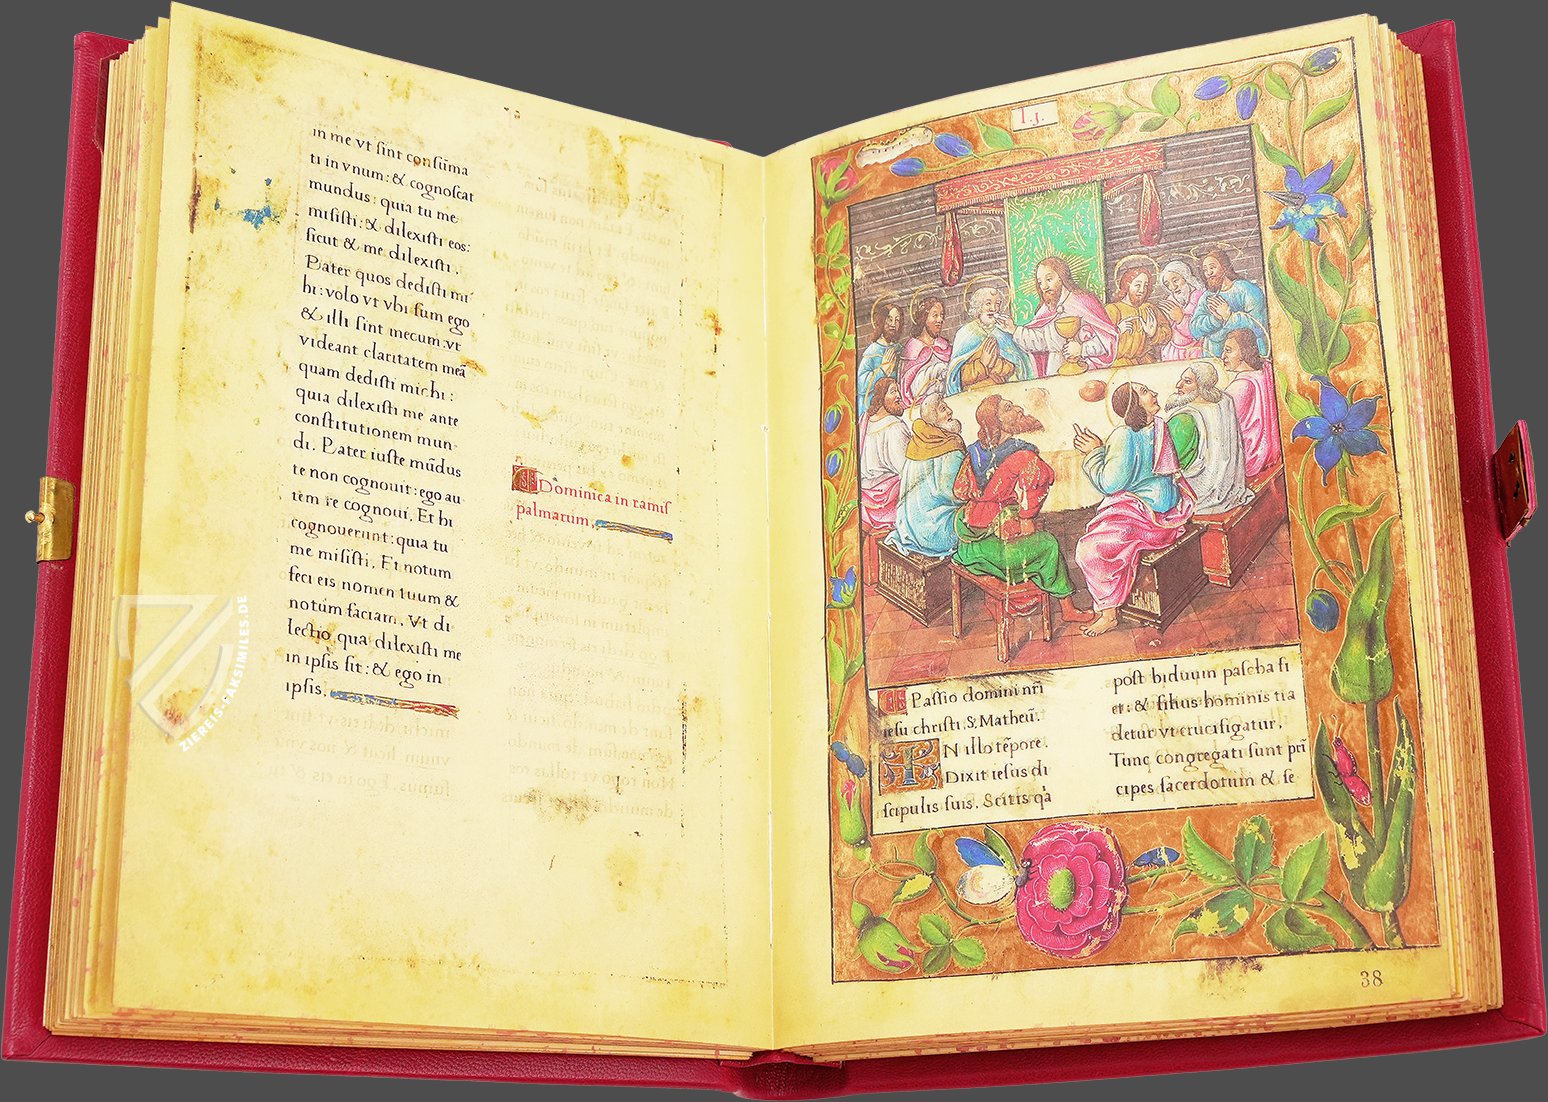 in me vt sint consūma
ti in vnum: & cognoscat
mundus: quia tu me
misisti: & dilexisti eos:
sicut & me dilexisti.
Pater quos dedisti mi
hi: volo vt vbi sum ego
& illi sint mecum: vt
videant claritatem meā
quam dedisti michi:
quia dilexisti me ante
constitutionem mun-
di. Pater iuste mūdus
te non cognouit: ego au-
tem te cognoui. Et hi
cognouerunt: quia tu
me misisti. Et notum
feci eis nomen tuum &
notum faciam. Vt di-
lectio qua dilexisti me
in ipsis sit: & ego in
ipsis.
Dominica in ramis
palmarum.
ZIEREIS-FAKSIMILES.DE
I.j.
Passio domini nrī
iesu christi. S. Matheū.
IN illo tēpore.
Dixit iesus di
scipulis suis. Scitis qā
post biduum pascha fi
et: & filius hominis tra
detur vt crucifigatur.
Tunc congregati sunt prī
cipes sacerdotum & se
38